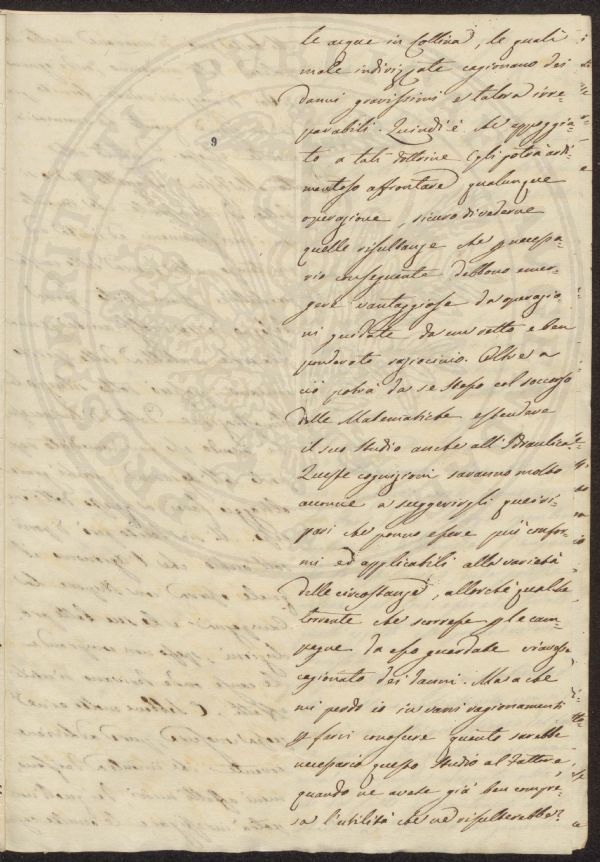 le acque in Collina, le quali
male indirizzate cagionano dei
danni gravissimi e talora irre-
parabili. Quindi è che appoggia-
to a tali dottrine Egli potrà ardi-
mentoso affrontare qualunque
operazione, sicuro di vederne
quelle risultanze che p necessa-
rio conseguente debbono emer-
gere vantaggiose da operazio-
ni guidate da un retto e ben
ponderato raziocinio. Oltre a
ciò potrà da se stesso col soccorso
delle Matematiche estendere
il suo studio anche all'Idraulica.
Queste cognizioni saranno molto
acconce a suggerirgli quei ri-
pari che ponno essere più confor-
mi ed applicabili alla varietà
delle circostanze, allorché qualche
torrente che scorresse p le cam-
pagne da esso guardate
cagionato dei danni. Ma a che
mi perdo io in varii ragionamenti
p farvi conoscere quanto sarebbe
necessario questo studio al Fattore,
quando ne avete già ben compre-
sa l'utilità che ne risulterebbe?
9